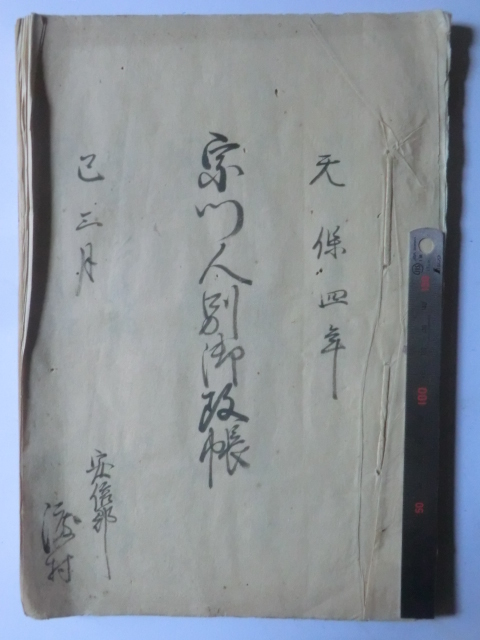 天保四年
宗門人別御改帳
巳三月
安倍郡
渡村
100
50